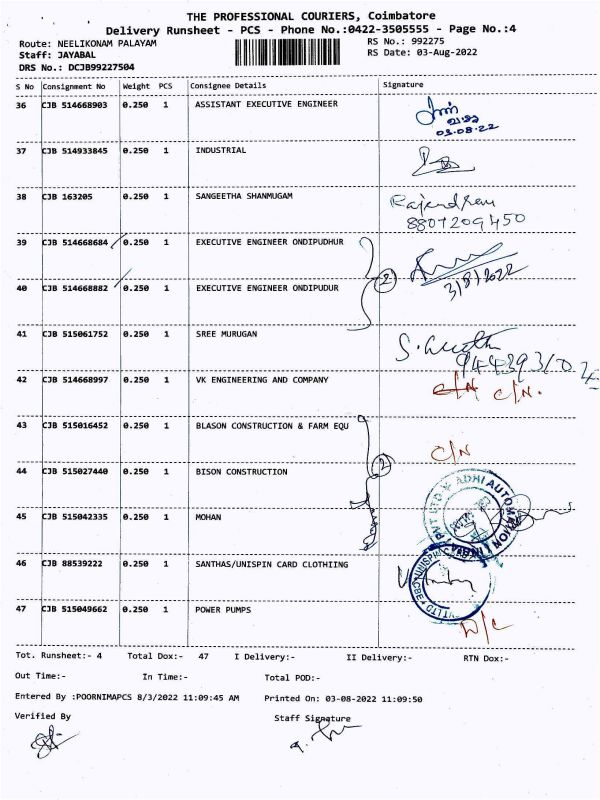 THE PROFESSIONAL COURIERS, Coimbatore
Delivery Runsheet - PCS - Phone No.:0422-3505555 - Page No.:4
Route: NEELIKONAM PALAYAM RS No.: 992275
Staff: JAYABAL RS Date: 03-Aug-2022
DRS No.: DCJB99227504
S No Consignment No Weight PCS Consignee Details Signature
36 CJB 514668903 0.250 1 ASSISTANT EXECUTIVE ENGINEER
03.08.22
37 CJB 514933845 0.250 1 INDUSTRIAL
38 CJB 163205 0.250 1 SANGEETHA SHANMUGAM Rajendran
8807209450
39 CJB 514668684 0.250 1 EXECUTIVE ENGINEER ONDIPUDHUR
40 CJB 514668882 0.250 1 EXECUTIVE ENGINEER ONDIPUDUR 2 3/8/2022
41 CJB 515061752 0.250 1 SREE MURUGAN
42 CJB 514668997 0.250 1 VK ENGINEERING AND COMPANY C/N C/N.
43 CJB 515016452 0.250 1 BLASON CONSTRUCTION & FARM EQU C/N
44 CJB 515027440 0.250 1 BISON CONSTRUCTION 2
45 CJB 515042335 0.250 1 MOHAN
46 CJB 88539222 0.250 1 SANTHAS/UNISPIN CARD CLOTHIING
47 CJB 515049662 0.250 1 POWER PUMPS D/C
Tot. Runsheet:- 4 Total Dox:- 47 I Delivery:- II Delivery:- RTN Dox:-
Out Time:- In Time:- Total POD:-
Entered By :POORNIMAPCS 8/3/2022 11:09:45 AM Printed On: 03-08-2022 11:09:50
Verified By Staff Signature